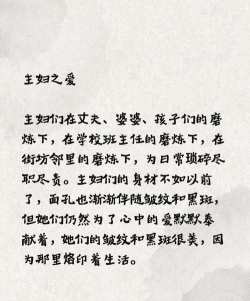 主妇之爱
主妇们在丈夫、婆婆、孩子们的磨
炼下，在学校班主任的磨炼下，在
街坊邻里的磨炼下，为日常琐碎尽
职尽责。主妇们的身材不如以前
了，面孔也渐渐伴随皱纹和黑斑，
但她们仍然为了心中的爱默默奉
献着，她们的皱纹和黑斑很美，因
为那里烙印着生活。